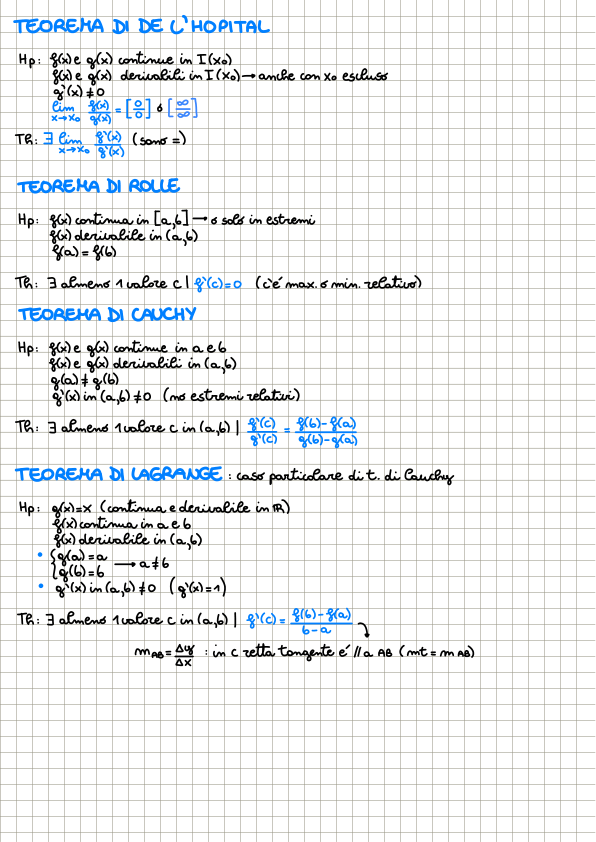 TEOREMA DI DE L'HOPITAL
Hp: f(x) e g(x) continue in I(x₀)
f(x) e g(x) derivabili in I(x₀) → anche con x₀ escluso
g'(x) ≠ 0
lim x→x₀ f(x)/g(x) = [0/0] o [∞/∞]
Th: ∃ lim x→x₀ f'(x)/g'(x) (sono =)
TEOREMA DI ROLLE
Hp: f(x) continua in [a,b] → o solo in estremi
f(x) derivabile in (a,b)
f(a) = f(b)
Th: ∃ almeno 1 valore c | f'(c)=0 (c'é max. o min. relativo)
TEOREMA DI CAUCHY
Hp: f(x) e g(x) continue in a e b
f(x) e g(x) derivabili in (a,b)
g(a) ≠ g(b)
g'(x) in (a,b) ≠0 (no estremi relativi)
Th: ∃ almeno 1 valore c in (a,b) | f'(c)/g'(c) = f(b)-f(a)/g(b)-g(a)
TEOREMA DI LAGRANGE : caso particolare di t. di Cauchy
Hp: g(x)=x (continua e derivabile in ℝ)
f(x) continua in a e b
f(x) derivabile in (a,b)
• { g(a) = a
g(b) = b → a ≠ b
• g'(x) in (a,b) ≠0 (g'(x)=1)
Th: ∃ almeno 1 valore c in (a,b) | f'(c) = f(b)-f(a)/b-a
m AB = Δy/Δx : in c retta tangente e' // a AB (mt = m AB)